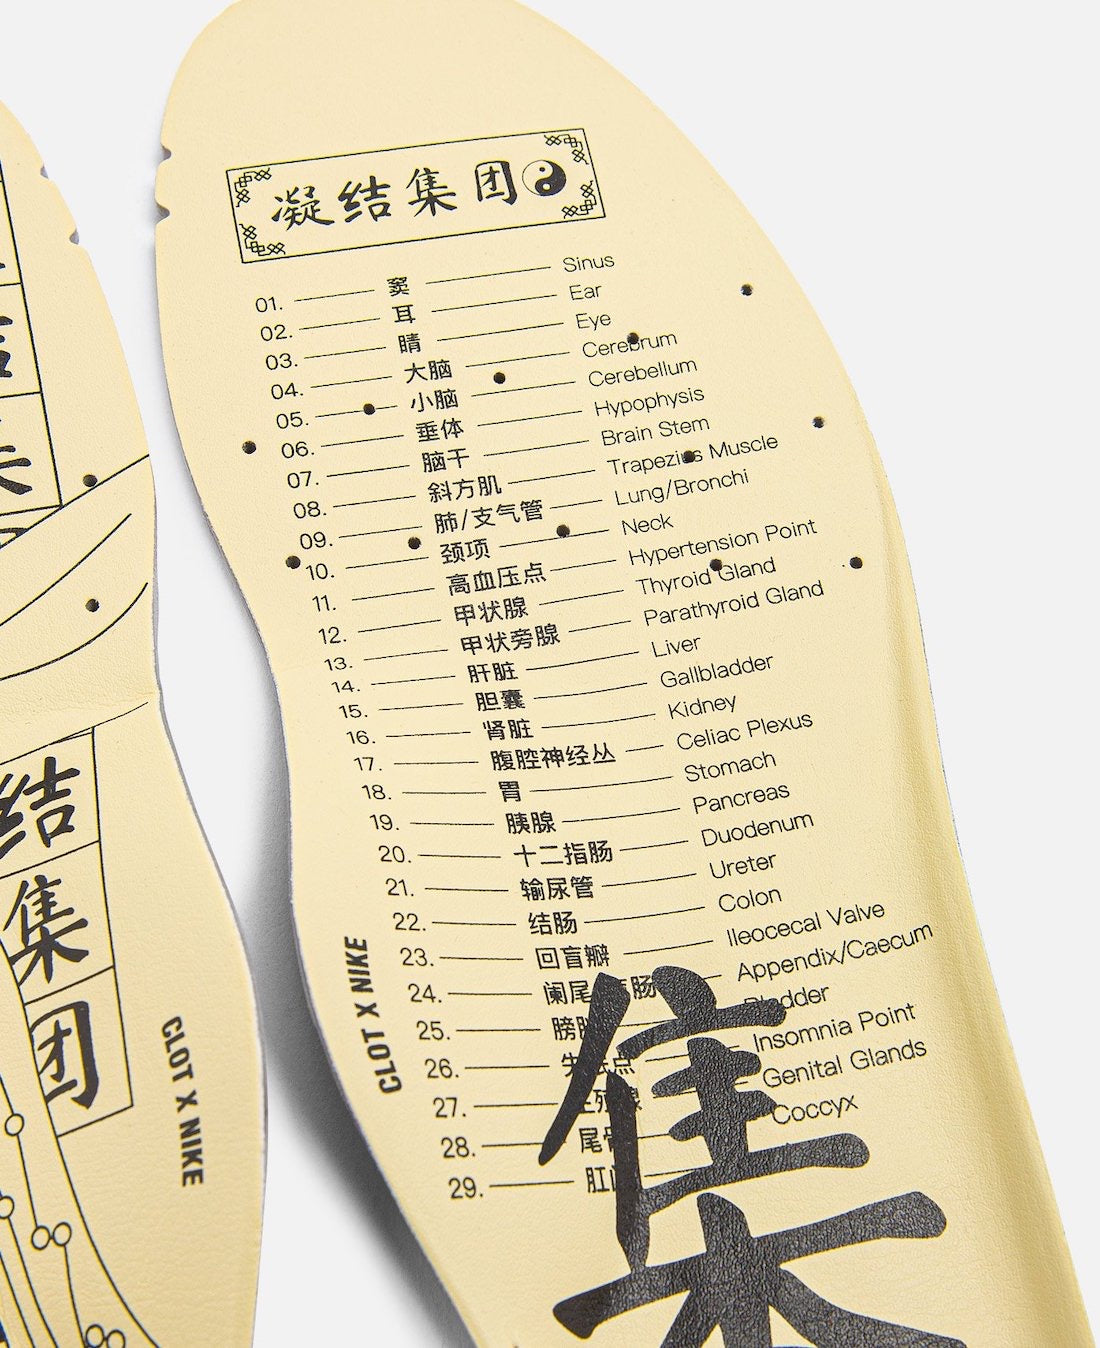 凝结集团
01. 窦 Sinus
02. 耳 Ear
03. 睛 Eye
04. 大脑 Cerebrum
05. 小脑 Cerebellum
06. 垂体 Hypophysis
07. 脑干 Brain Stem
08. 斜方肌 Trapezius Muscle
09. 肺/支气管 Lung/Bronchi
10. 颈项 Neck
11. 高血压点 Hypertension Point
12. 甲状腺 Thyroid Gland
13. 甲状旁腺 Parathyroid Gland
14. 肝脏 Liver
15. 胆囊 Gallbladder
16. 肾脏 Kidney
17. 腹腔神经丛 Celiac Plexus
18. 胃 Stomach
19. 胰腺 Pancreas
20. 十二指肠 Duodenum
21. 输尿管 Ureter
22. 结肠 Colon
23. 回盲瓣 Ileocecal Valve
24. Appendix/Caecum
25. Bladder
26. Insomnia Point
27. Genital Glands
28. 尾骨 Coccyx
29.
CLOT X NIKE
集
结
集
团
CLOT X NIKE